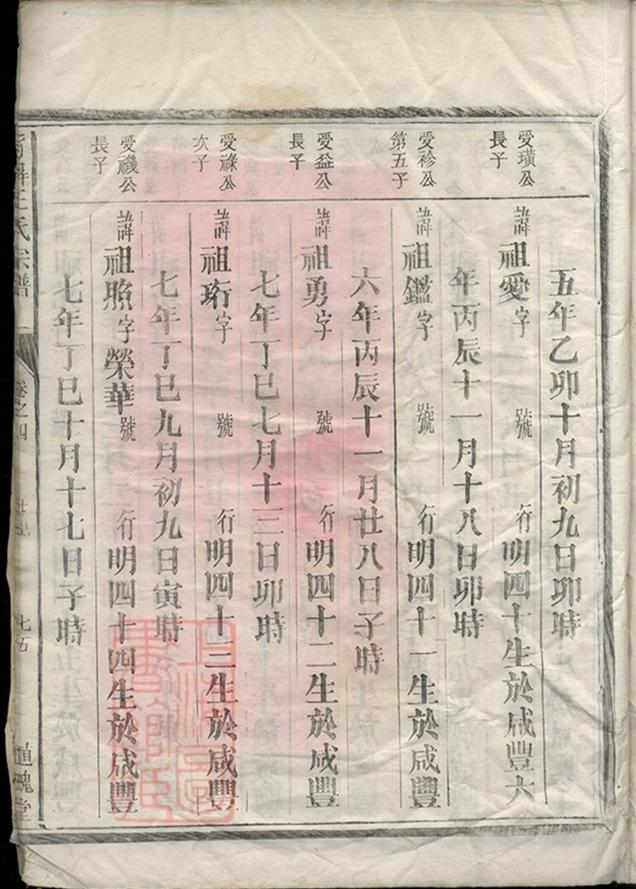 五年乙卯十月初九日卯時
受璜公
長子
諱祖愛字 號 行明四十生於咸豐六
年丙辰十一月十八日卯時
受袗公
第五子
諱祖鑑字 號 行明四十一生於咸豐
六年丙辰十一月廿八日子時
受益公
長子
諱祖勇字 號 行明四十二生於咸豐
七年丁巳七月十三日卯時
受祿公
次子
諱祖珩字 號 行明四十三生於咸豐
七年丁巳九月初九日寅時
受禨公
長子
諱祖照字榮華號 行明四十四生於咸豐
七年丁巳十月十七日子時
王氏宗譜 卷之四